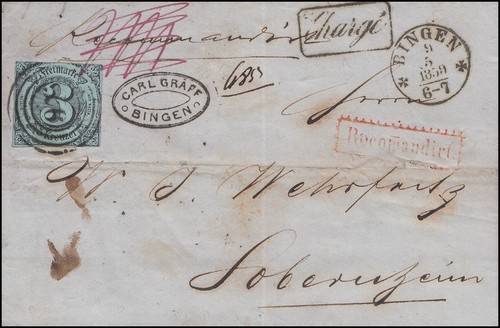 Recommandirt
Chargé
BINGEN
9
5
1859
6-7
Freimarke
3
Kreuzer
CARL GRÄFF
BINGEN
Herrn
Recomandirt.
W. J. Wehrfritz
Sobernheim